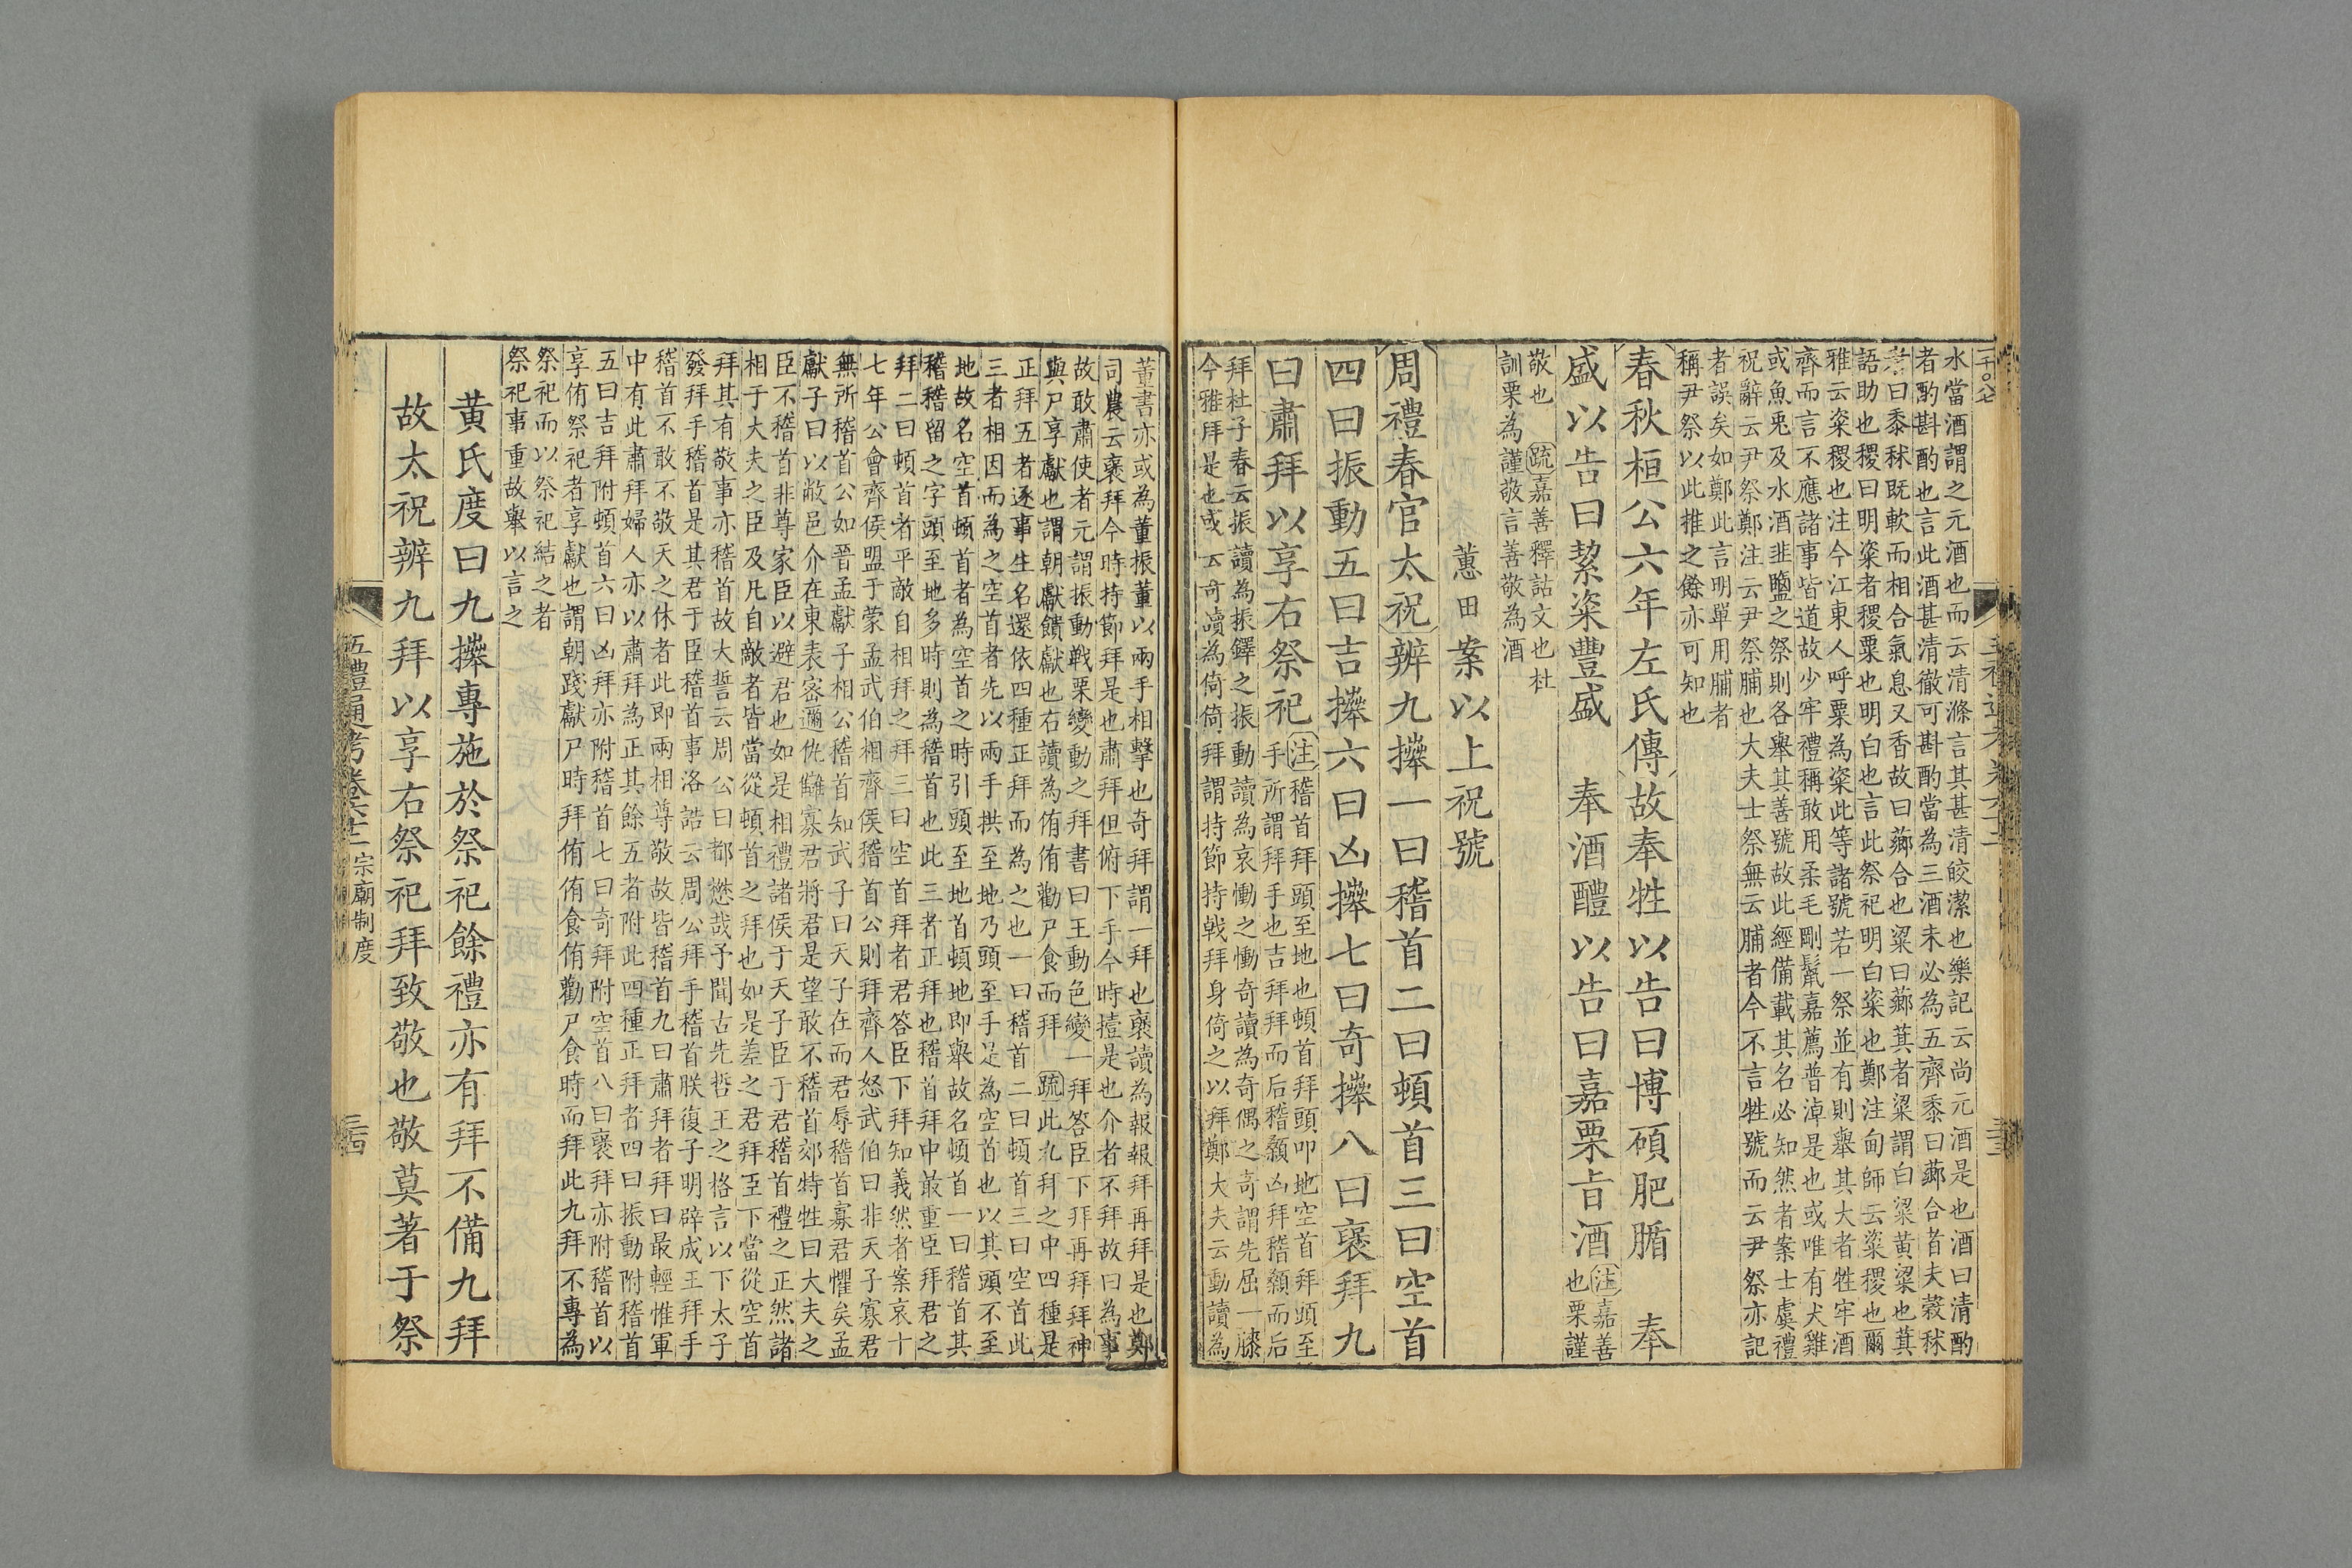 水當酒謂之元酒也而云清滌言其甚清皎潔也樂記云尚元酒是也酒曰清酌
者酌斟酌也言此酒甚清徹可斟酌當為三酒未必為五齊黍曰薌合者夫穀秫
者曰黍秫既軟而相合氣息又香故曰薌合也粱曰薌萁者粱謂白粱黃粱也萁
語助也稷曰明粢者稷粟也明白也言此祭祀明白粢也鄭注甸師云粢稷也爾
雅云粢稷也注今江東人呼粟為粢此等諸號若一祭並有則舉其大者牲牢酒
齊而言不應諸事皆道故少牢禮稱敢用柔毛剛鬣嘉薦普淖是也或唯有犬雞
或魚兎及水酒韭鹽之祭則各舉其善號故此經備載其名必知然者案士虞禮
祝辭云尹祭鄭注云尹祭脯也大夫士祭無云脯者今不言牲號而云尹祭亦記
者誤矣如鄭此言明單用脯者
稱尹祭以此推之餘亦可知也
春秋桓公六年左氏傳故奉牲以告曰博碩肥腯 奉
盛以告曰絜粢豐盛 奉酒醴以告曰嘉栗旨酒 注嘉善也栗謹
敬也 疏嘉善釋詁文也杜
訓栗為謹敬言善敬為酒
蕙田案以上祝號
周禮春官太祝辨九㩵一曰稽首二曰頓首三曰空首
四曰振動五曰吉㩵六曰凶㩵七曰奇㩵八曰襃拜九
曰肅拜以享右祭祀 注稽首拜頭至地也頓首拜頭叩地空首拜頭至
手所謂拜手也吉拜拜而后稽顙凶拜稽顙而后
拜杜子春云振讀為振鐸之振動讀為哀慟之慟奇讀為奇偶之奇謂先屈一膝
今雅拜是也或云奇讀為倚倚拜謂持節持戟拜身倚之以拜鄭大夫云動讀為
董書亦或為董振董以兩手相擊也奇拜謂一拜也襃讀為報報拜再拜是也鄭
司農云襃拜今時持節拜是也肅拜但俯下手今時撎是也介者不拜故曰為事
故敢肅使者元謂振動戰栗變動之拜書曰王動色變一拜答臣下拜再拜拜神
與尸享獻也謂朝獻饋獻也右讀為侑侑勸尸食而拜 疏此九拜之中四種是
正拜五者逐事生名還依四種正拜而為之也一曰稽首二曰頓首三曰空首此
三者相因而為之空首者先以兩手拱至地乃頭至手是為空首也以其頭不至
地故名空首頓首者為空首之時引頭至地首頓地即舉故名頓首一曰稽首其
稽稽留之字頭至地多時則為稽首也此三者正拜也稽首拜中最重臣拜君之
拜二曰頓首者平敵自相拜之拜三曰空首拜者君答臣下拜知義然者案哀十
七年公會齊侯盟于蒙孟武伯相齊侯稽首公則拜齊人怒武伯曰非天子寡君
無所稽首公如晉孟獻子相公稽首知武子曰天子在而君辱稽首寡君懼矣孟
獻子曰以敝邑介在東表密邇仇讎寡君將君是望敢不稽首郊特牲曰大夫之
臣不稽首非尊家臣以避君也如是相禮諸侯于天子臣于君稽首禮之正然諸
相于大夫之臣及凡自敵者皆當從頓首之拜也如是差之君拜臣下當從空首
拜其有敬事亦稽首故大誓云周公曰都懋哉予聞古先哲王之格言以下太子
發拜手稽首是其君于臣稽首事洛誥云周公拜手稽首朕復子明辟成王拜手
稽首不敢不敬天之休者此即兩相尊敬故皆稽首九曰肅拜者拜曰最輕惟軍
中有此肅拜婦人亦以肅拜為正其餘五者附此四種正拜者四曰振動附稽首
五曰吉拜附頓首六曰凶拜亦附稽首七曰奇拜附空首八曰襃拜亦附稽首以
享侑祭祀者享獻也謂朝踐獻尸時拜侑侑食侑勸尸食時而拜此九拜不專為
祭祀而以祭祀結之者
祭祀事重故舉以言之
黃氏度曰九㩵專施於祭祀餘禮亦有拜不備九拜
故太祝辨九拜以享右祭祀拜致敬也敬莫著于祭
五禮通考卷六十一 宗廟制度